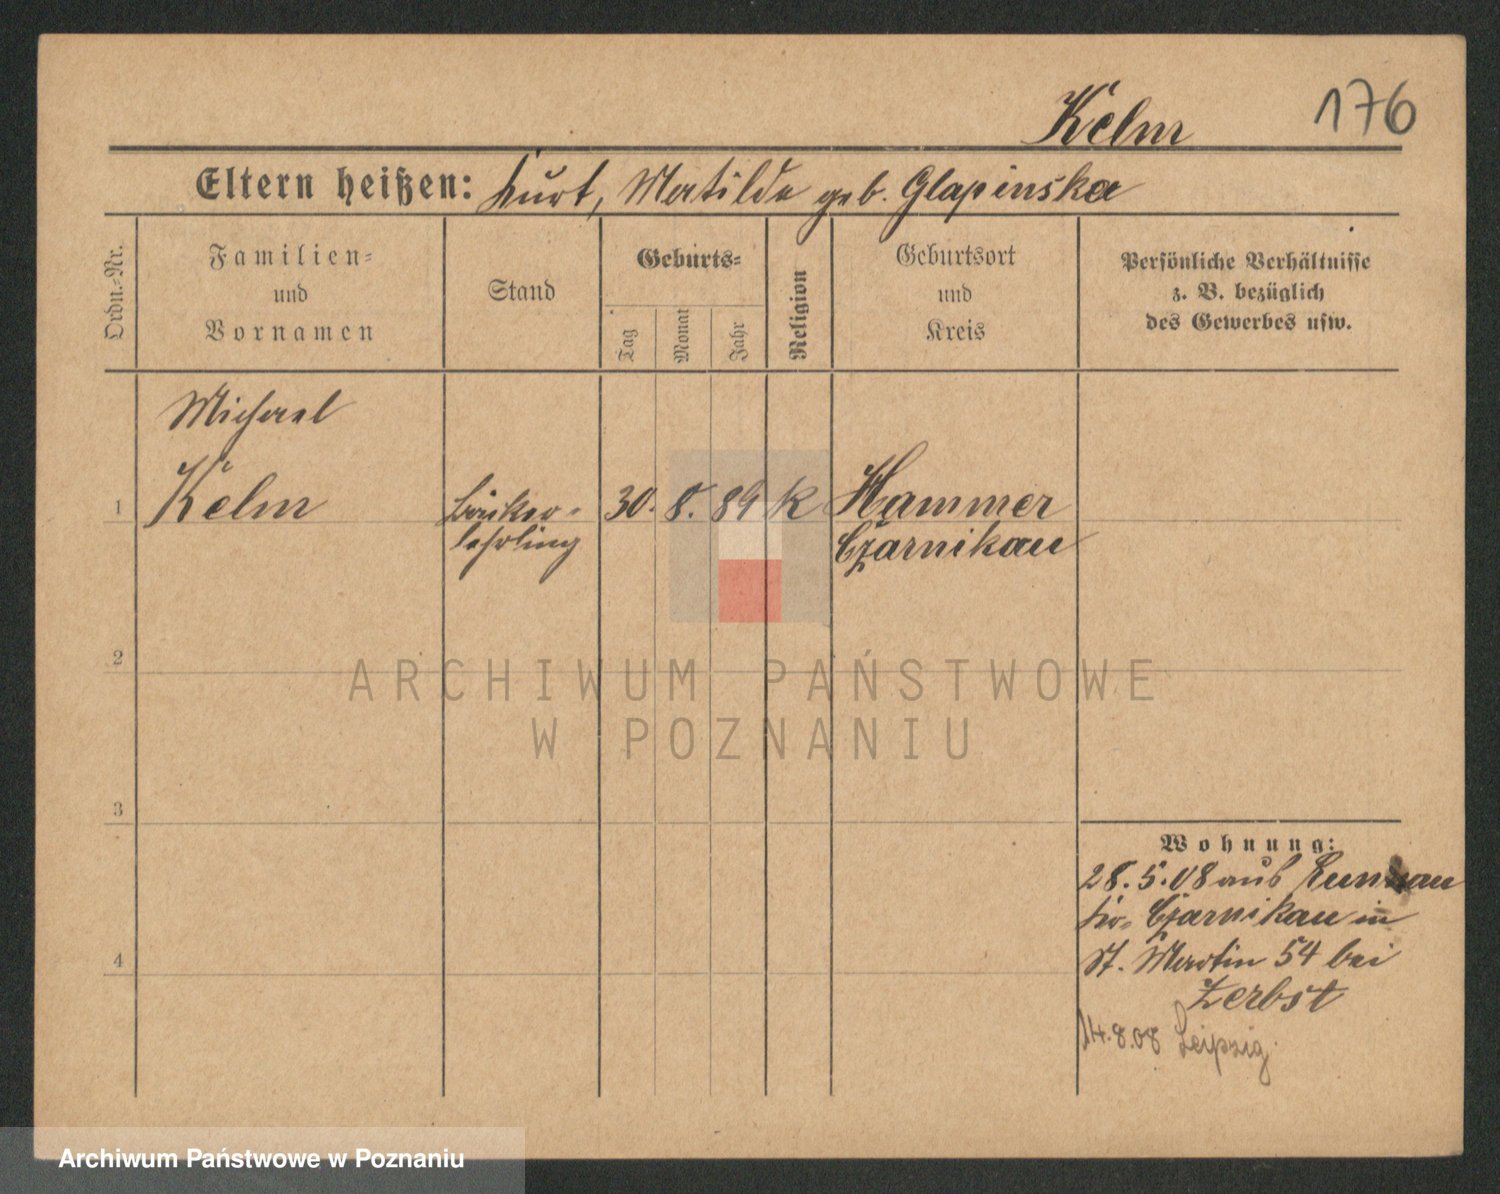 Kelm 176
Eltern heißen: Kurt, Matilde geb. Glapinska
Ordn.-Nr.
Familien- und Vornamen
Stand
Geburts-
Tag
Monat
Jahr
Religion
Geburtsort und Kreis
Persönliche Verhältnisse
z. B. bezüglich
des Gewerbes usw.
Michael
1 Kelm Bäcker- 30. 8. 89 k Hammer
lehrling Czarnikau
2
ARCHIWUM PAŃSTWOWE
W POZNANIU
3
Wohnung:
28.5.08 aus
Kr. Czarnikau in
4 St. Martin 54 bei
Zerbst
14.8.08 Leipzig.
Archiwum Państwowe w Poznaniu